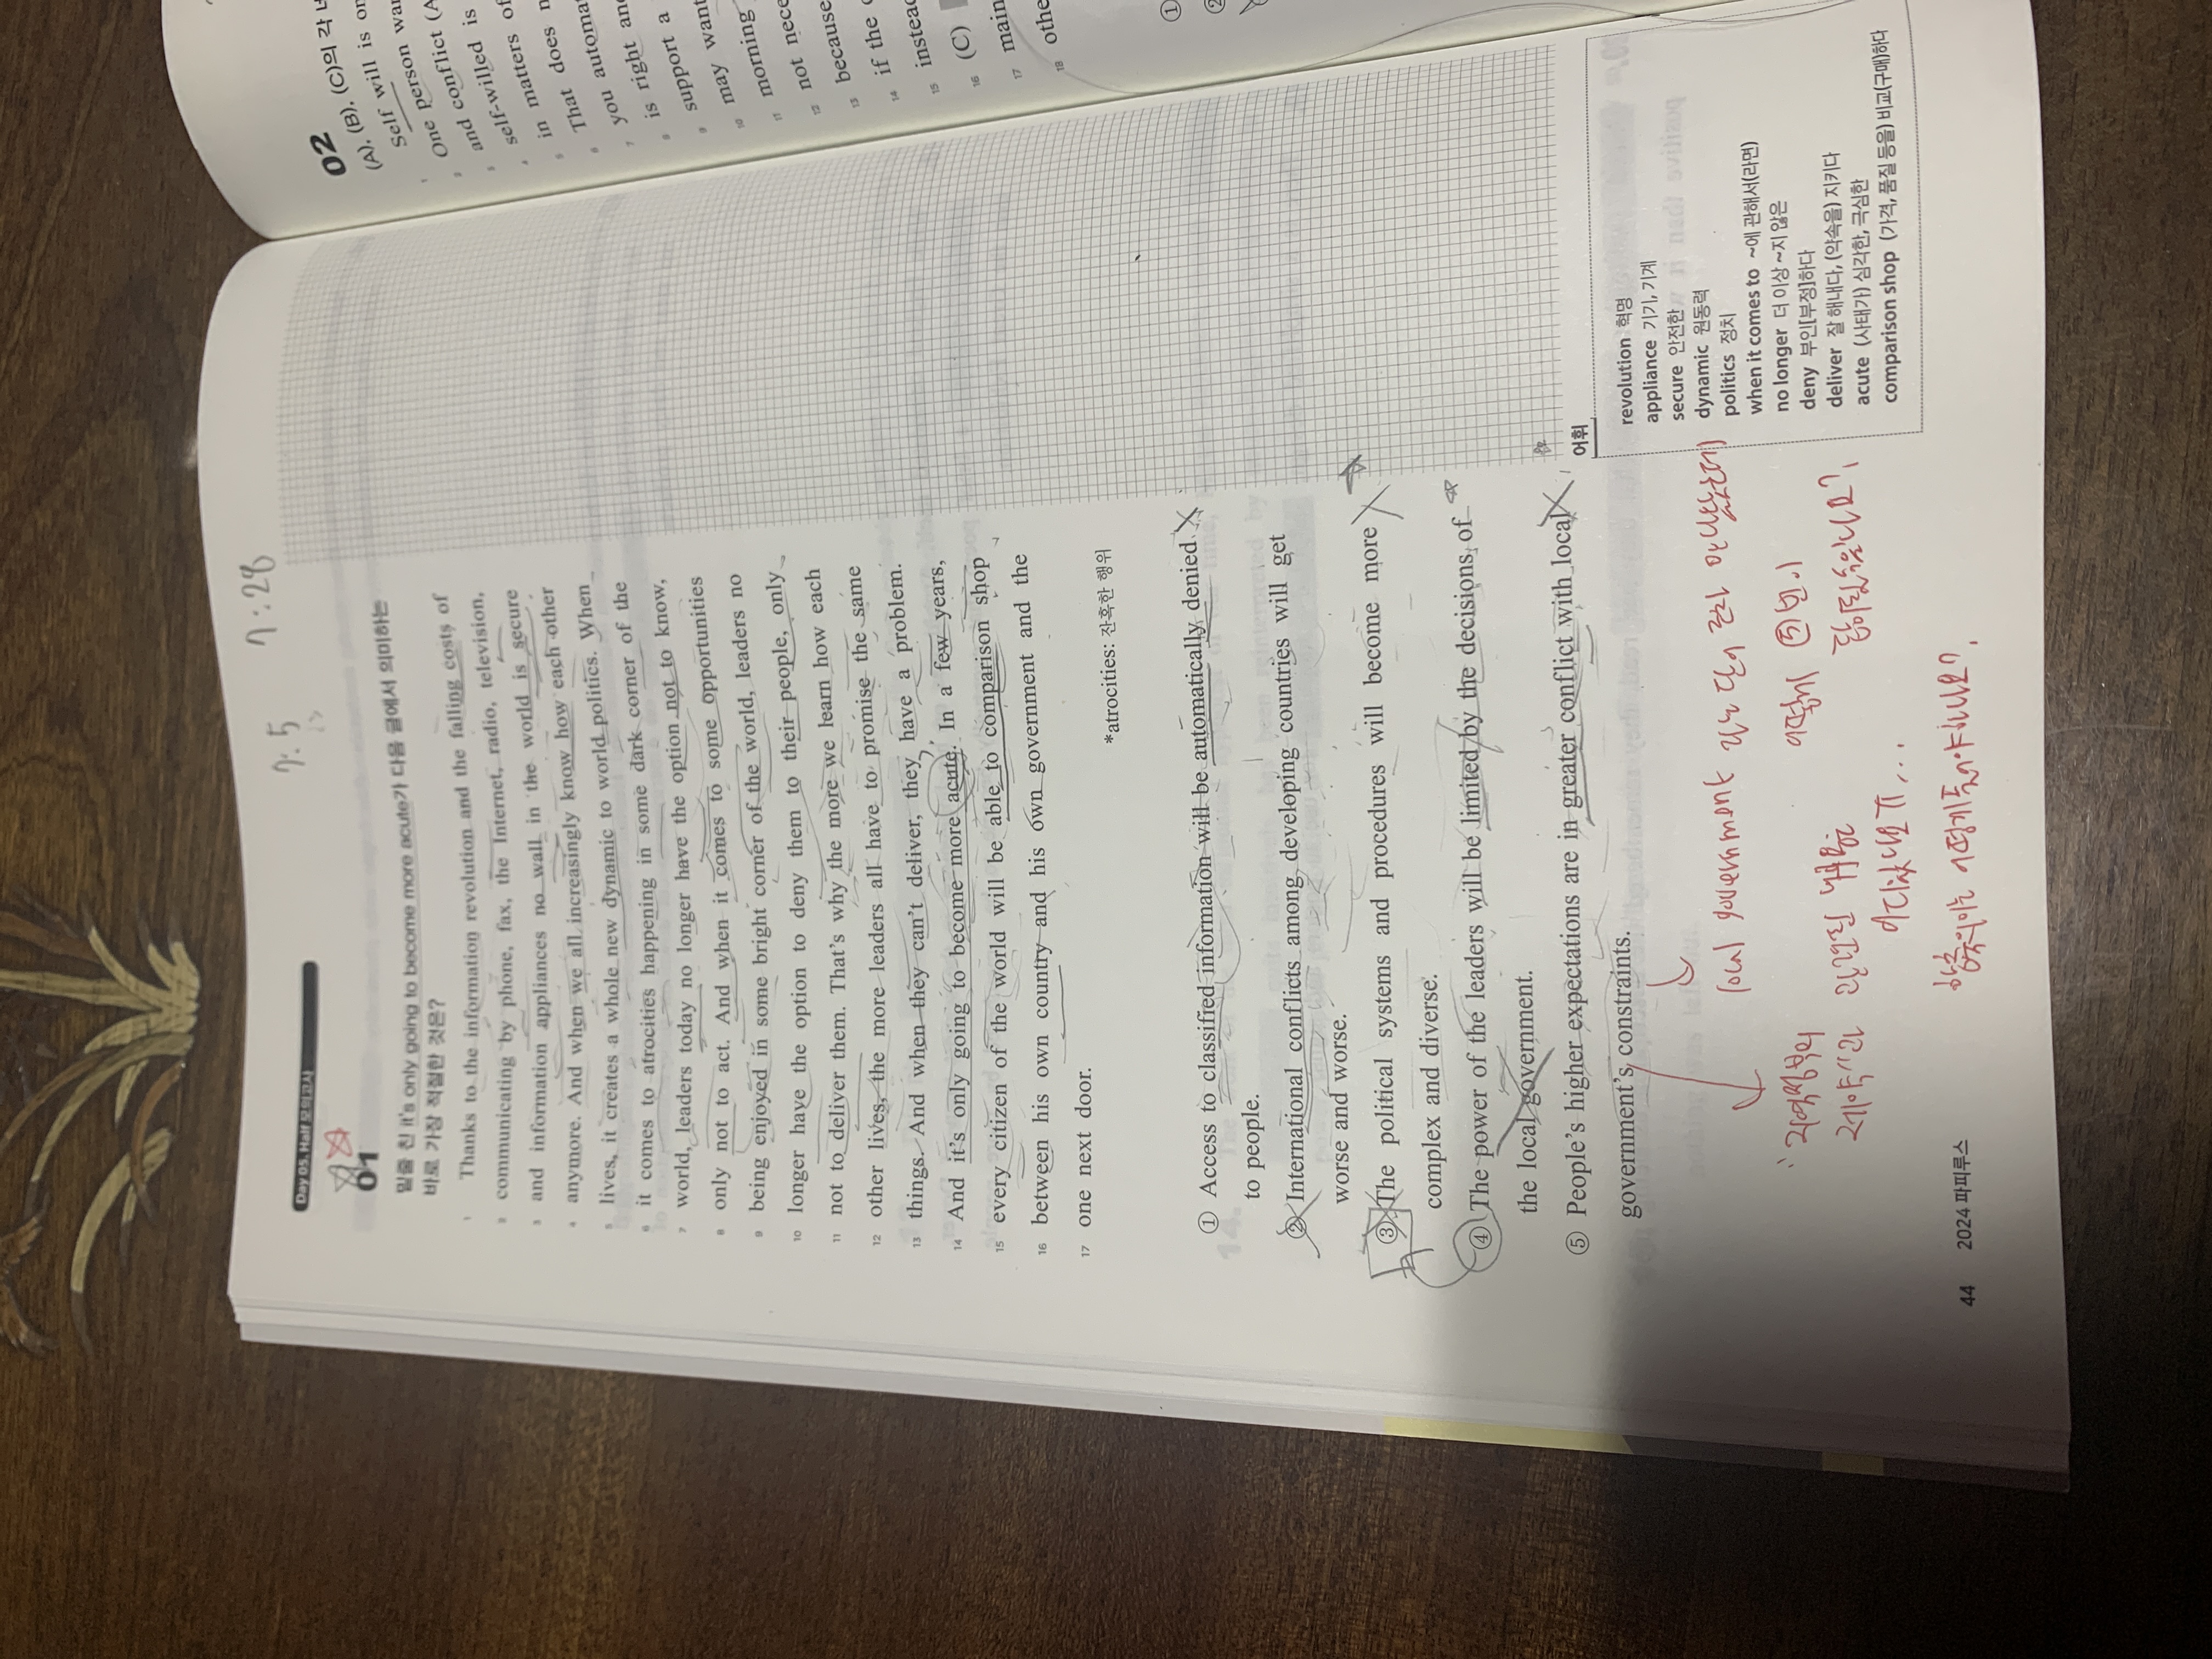 7:5
7:28
Day 05. Half 모의고사
01
밑줄 친 it's only going to become more acute가 다음 글에서 의미하는
바로 가장 적절한 것은?
1 Thanks to the information revolution and the falling costs of
2 communicating by phone, fax, the Internet, radio, television,
3 and information appliances no wall in the world is secure
4 anymore. And when we all increasingly know how each other
5 lives, it creates a whole new dynamic to world politics. When
6 it comes to atrocities happening in some dark corner of the
7 world, leaders today no longer have the option not to know,
8 only not to act. And when it comes to some opportunities
9 being enjoyed in some bright corner of the world, leaders no
10 longer have the option to deny them to their people, only
11 not to deliver them. That's why the more we learn how each
12 other lives, the more leaders all have to promise the same
13 things. And when they can't deliver, they have a problem.
14 And it's only going to become more acute. In a few years,
15 every citizen of the world will be able to comparison shop
16 between his own country and his own government and the
17 one next door.
*atrocities: 잔혹한 행위
① Access to classified information will be automatically denied
to people.
② International conflicts among developing countries will get
worse and worse.
③ The political systems and procedures will become more
complex and diverse.
④ The power of the leaders will be limited by the decisions of
the local government.
⑤ People's higher expectations are in greater conflict with local
government's constraints.
어휘
revolution 혁명
appliance 기기, 기계
secure 안전한
dynamic 원동력
politics 정치
when it comes to ~에 관해서(라면)
no longer 더 이상 ~지 않은
deny 부인[부정]하다
deliver 잘 해내다, (약속을) 지키다
acute (사태가) 심각한, 극심한
comparison shop (가격, 품질 등을) 비교(구매)하다
local government 라는 단어
어떻게 ⑤번이
답이 됐을까요?
"지역정부의
제약"과 관련된 내용
44 2024 파피루스
02
(A), (B), (C)의 각 네
Self will is on
1 One person wan
2 and conflict (A
3 self-willed is
4 in matters of
5 That does n
6 you automat
7 is right and
8 support a
9 may want
10 morning
11 not nece
12 because
13 if the c
14 instead
15 (C)
16 main
17 othe
18
①
②